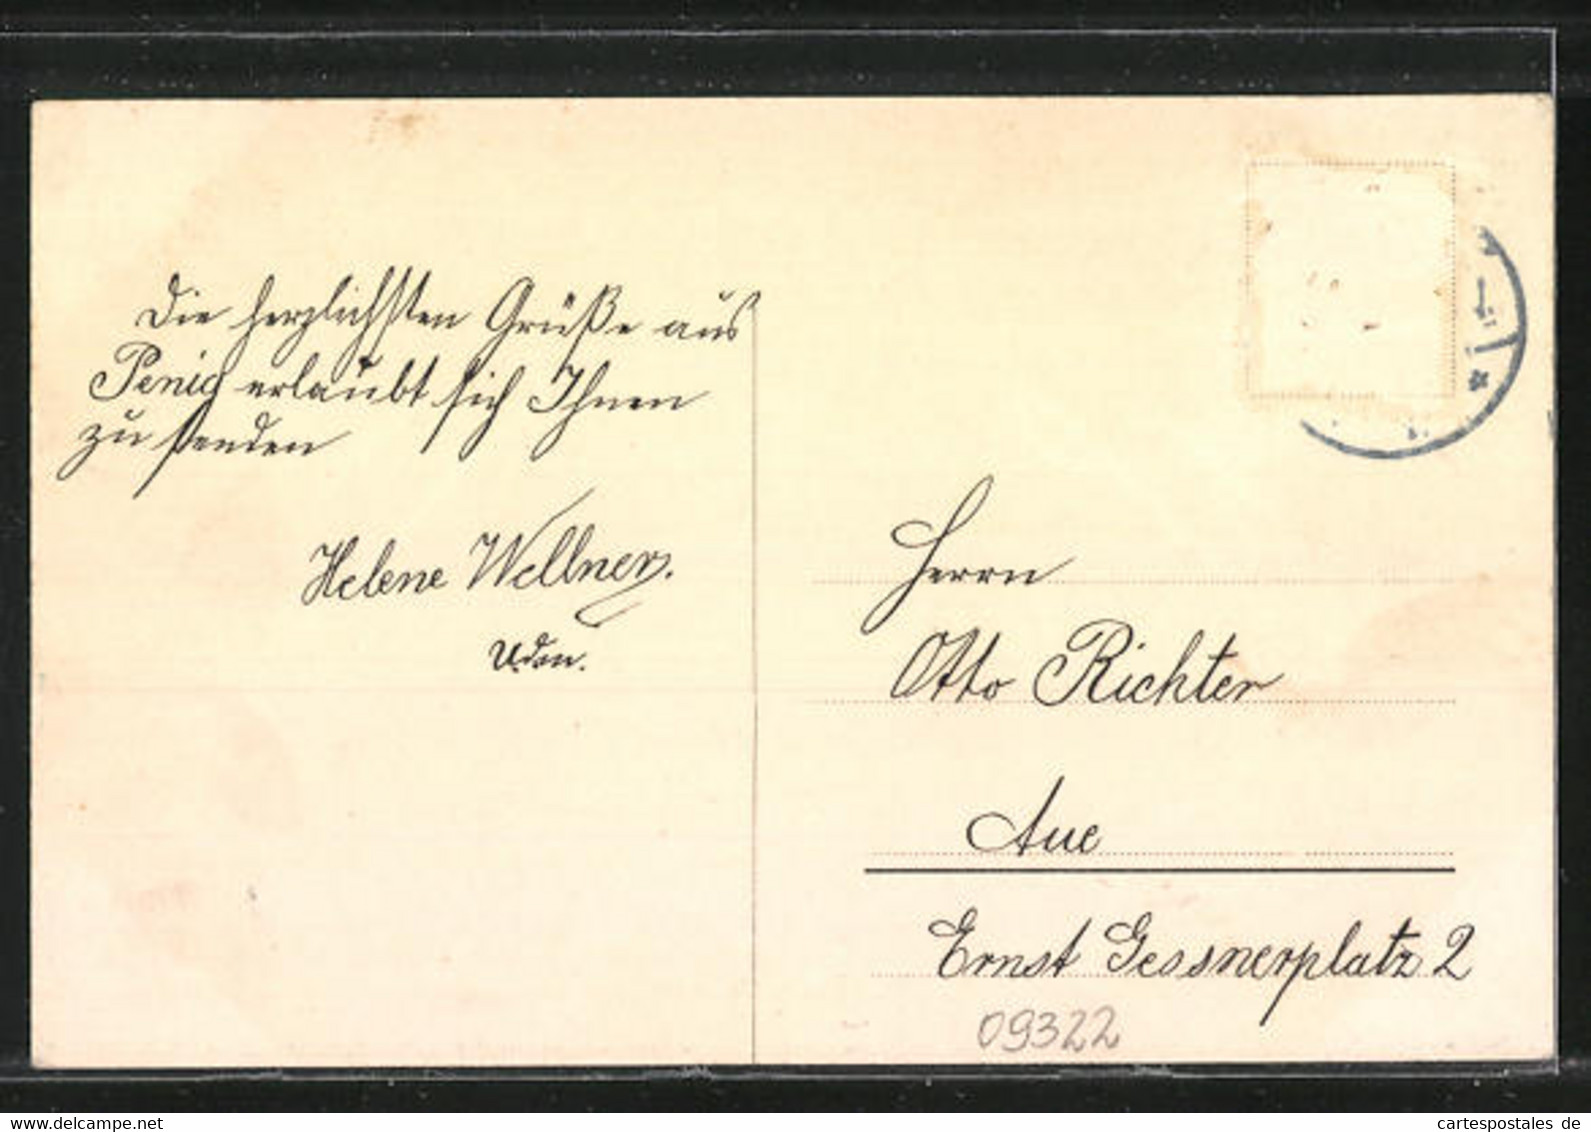 Die herzlichsten Grüße aus
Penig erlaubt sich Ihnen
zu senden
Helene Wellner.
Herrn
Otto Richter
Aue
Ernst Gessnerplatz 2
09322
www.delcampe.net
cartespostales de